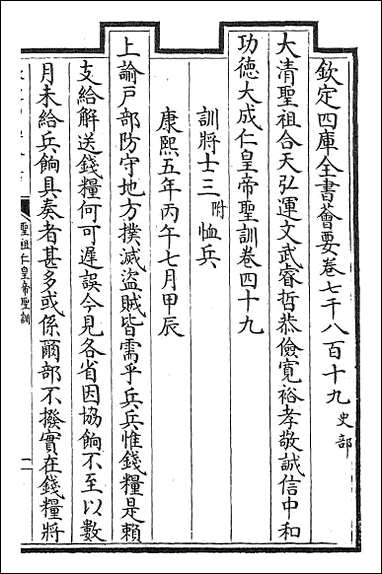 欽定四庫全書薈要卷七千八百十九 史部
大清聖祖合天弘運文武睿哲恭儉寬裕孝敬誠信中和
功德大成仁皇帝聖訓卷四十九
訓將士三 附恤兵
康熙五年丙午七月甲辰
上諭戶部防守地方撲滅盜賊皆需乎兵兵惟錢糧是賴
支給解送錢糧何可遲誤今見各省因協餉不至以數
月未給兵餉具奏者甚多或係爾部不撥實在錢糧將
聖祖仁皇帝聖訓 一